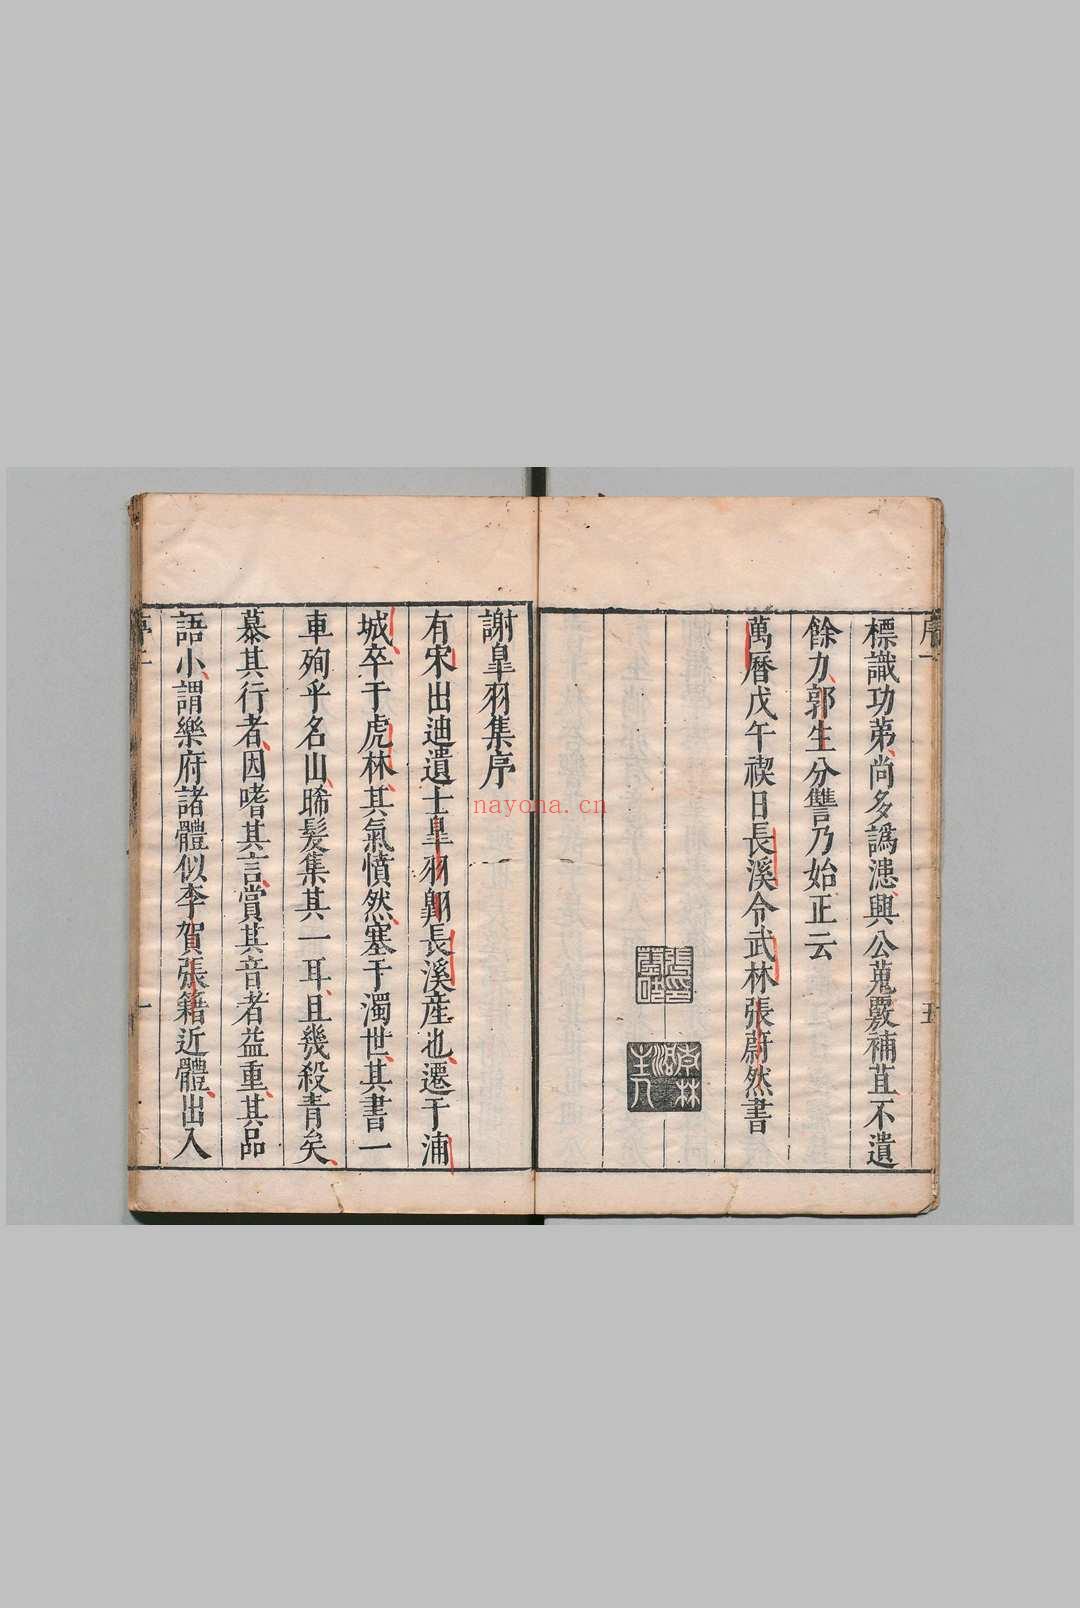 標識功弟尚多譌漶興公蒐覈補苴不遺
餘力郭生分讐乃始正云
萬曆戊午禊日長溪令武林張蔚然書
謝皐羽集序
有宋出迪遺士皐羽翺長溪産也遷于浦
城卒于虎林其氣憤然塞于濁世其書一
車殉乎名山晞髮集其一耳且幾殺青矣
慕其行者因嗜其言賞其音者益重其品
語小謂樂府諸體似李賀張籍近體出入
序二
一
序一
五
nayona.cn